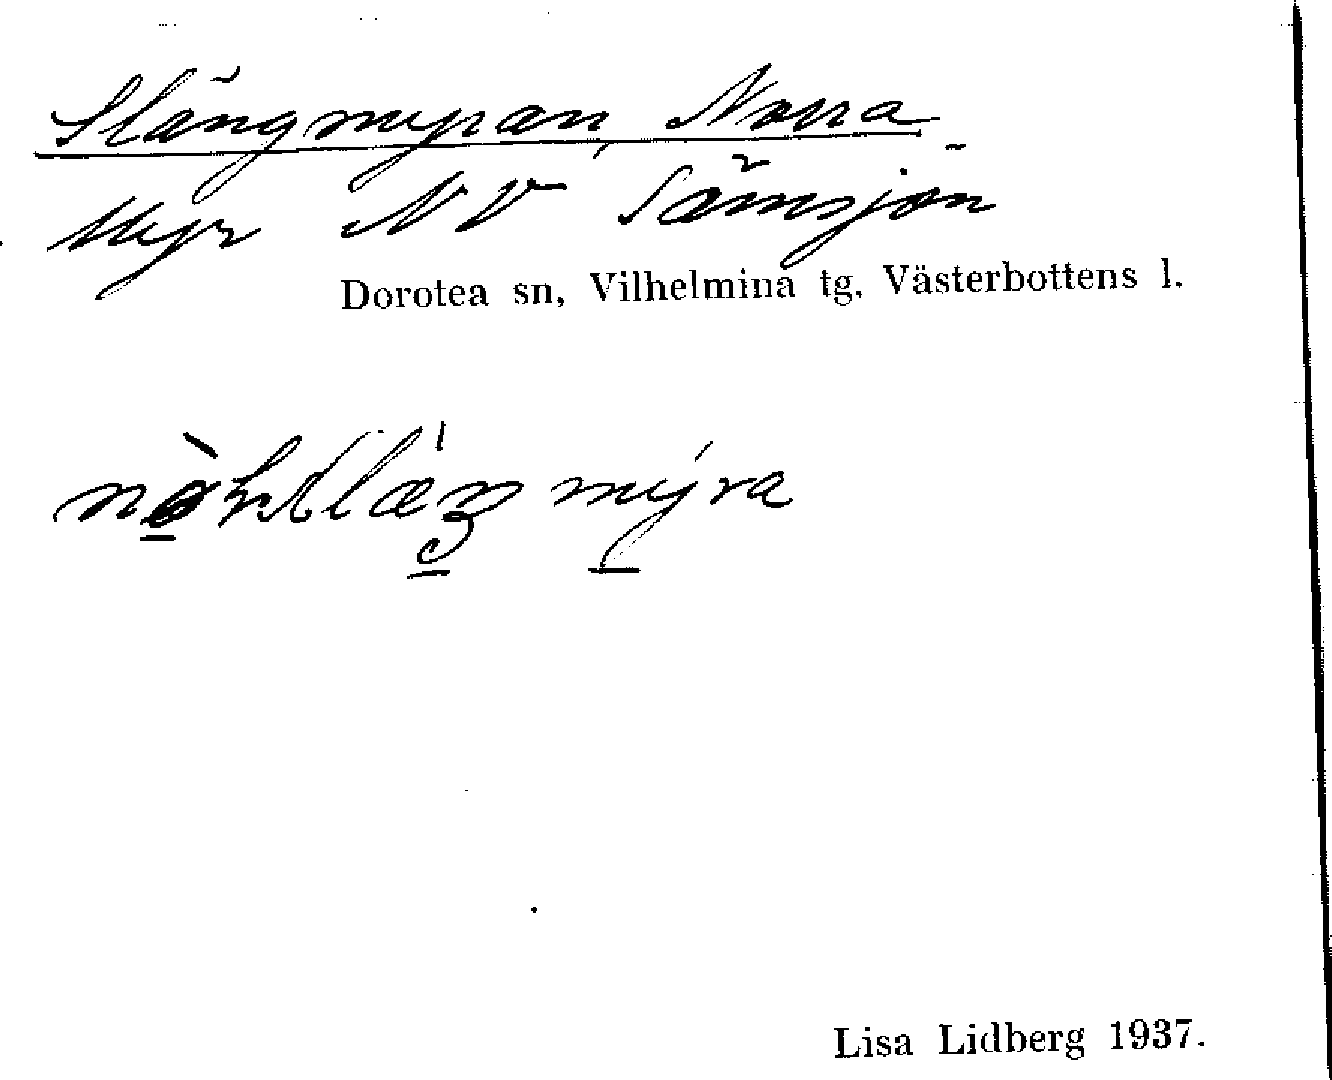 Slängmyran, Norra
Myr NV Sämsjön
Dorotea sn, Vilhelmina tg, Västerbottens l.
Lisa Lidberg 1937.